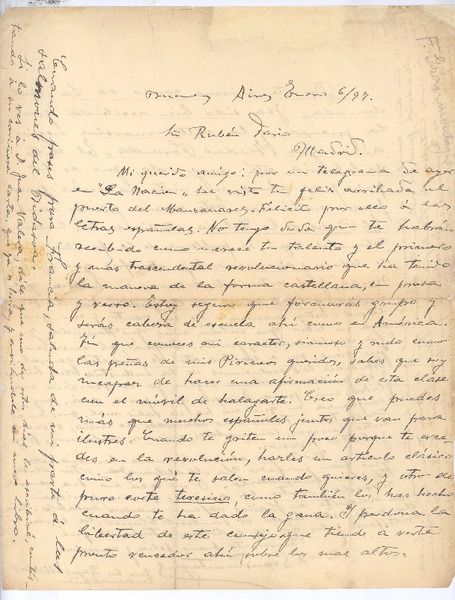 Buenos Aires Enero 6/97.
Sr. Rubén Darío
Madrid.
Mi querido amigo: por un telegrama de ayer
en "La Nacion", he visto tu feliz arribada al
puerto del Manzanares. Felicito por ello á las
letras españolas. No tengo duda que te habrán
recibido como merece tu talento y el primero
y mas trascendental revolucionario que ha tenido
la manera de la forma castellana, en prosa
y verso. Estoy seguro que formarás grupo y
serás cabeza de escuela ahí como en América.
Tú que conoces mi caracter, y rudo como
las peñas de mis Pirineos queridos, sabes que soy
incapaz de hacer una afirmacion de esta clase
con el móvil de halagarte. Creo que puedes
más que muchos españoles juntos que van para
ilustres. Cuando te griten un poco porque te exce-
des en la revolución, hazles un artículo clásico
como los que te salen cuando quieres, y otro de
puro corte teresino como tambien los has hecho
cuando te ha dado la gana. Y perdona la
libertad de este consejo que tiende á verte
pronto vencedor ahí sobre los mas altos.
Cuando pases para Francia, saluda de mi parte á los
salmones del Bidasoa.
Si lo ves á D. Juan Valera, dile que uno de estos días le escribiré contes-
tando á su cariñosa carta que ya
F. Grandmontagne